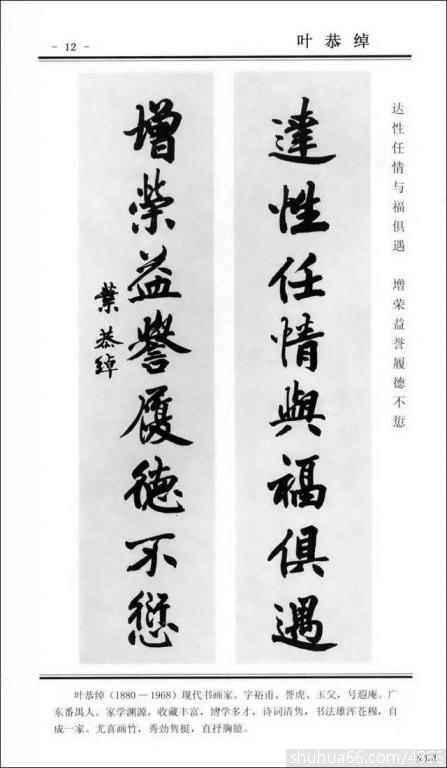 - 12 -
叶恭绰
達性任情與福俱遇
增榮益譽履德不愆
葉恭綽
达性任情与福俱遇 增荣益誉履德不愆
叶恭绰(1880—1968)现代书画家。字裕甫、誉虎、玉父,号遐庵。广
东番禺人。家学渊源,收藏丰富,博学多才,诗词清隽,书法雄浑苍穆,自
成一家。尤喜画竹,秀劲隽挺,直抒胸臆。